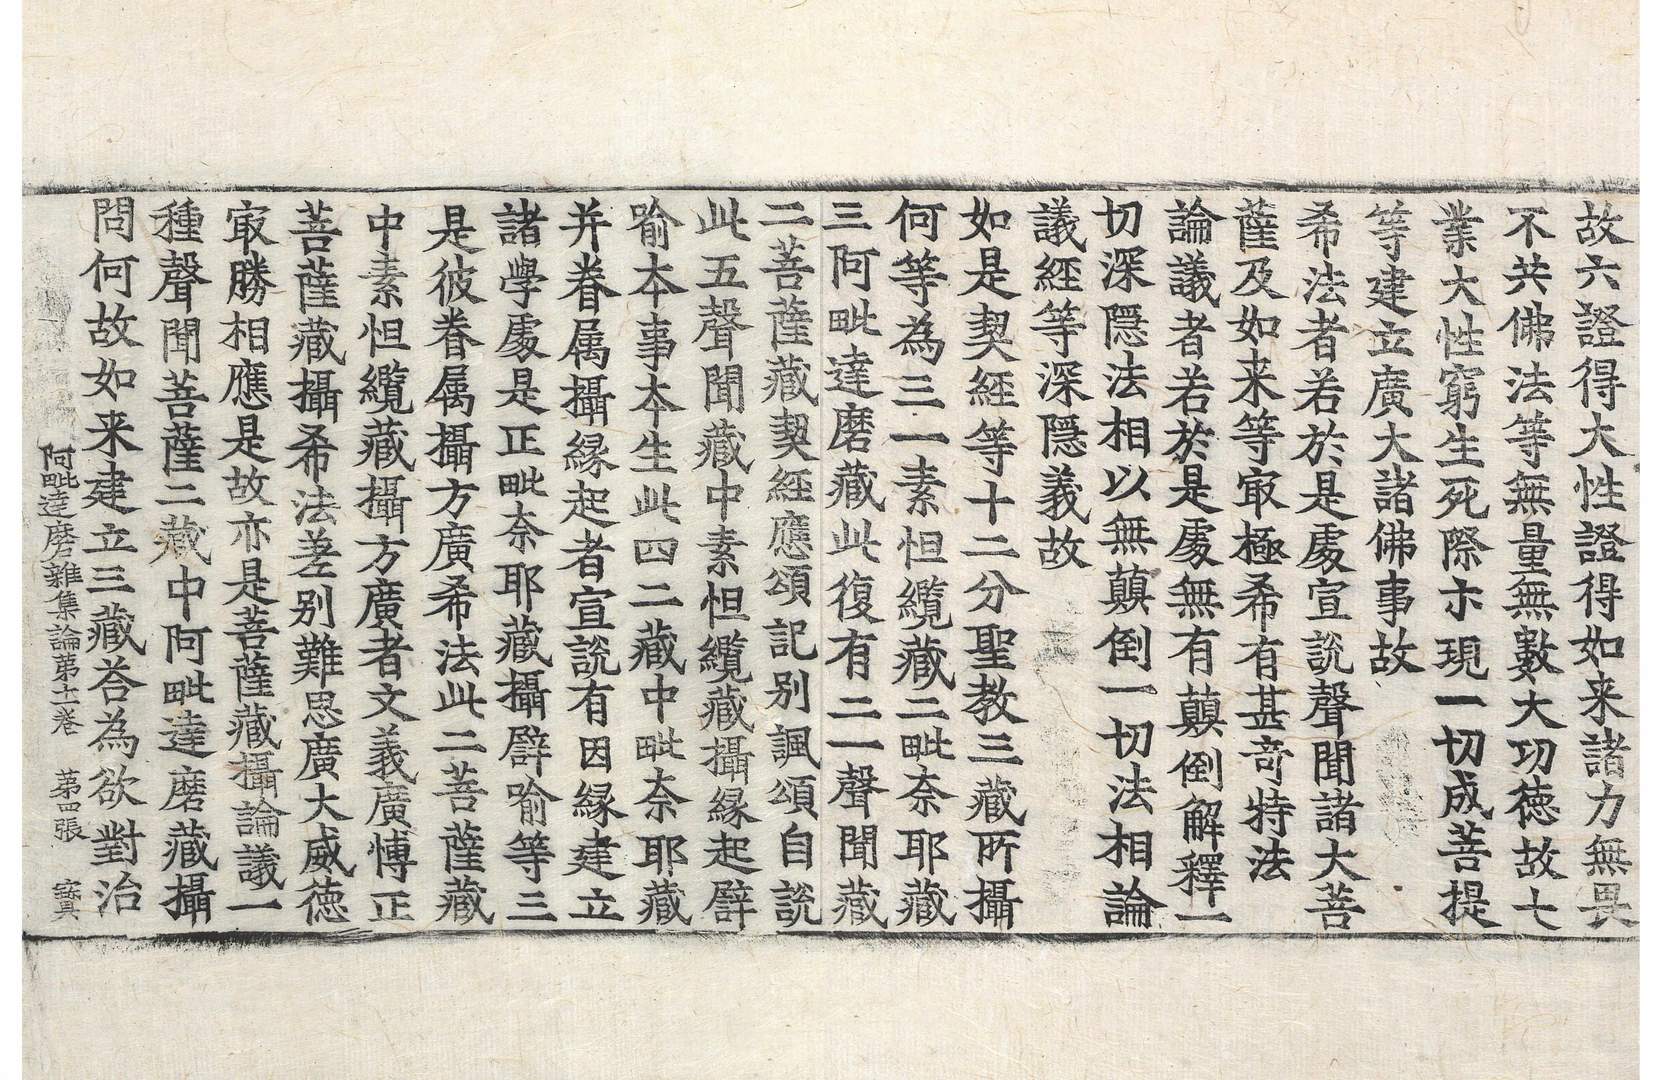 故六證得大性證得如来諸力無畏
不共佛法等無量無數大功徳故七
業大性窮生死際示現一切成菩提
等建立廣大諸佛事故
希法者若於是處宣説聲聞諸大菩
薩及如来等㝡極希有甚竒特法
論議者若於是處無有顛倒解釋一
切深隱法相以無顛倒一切法相論
議經等深隱義故
如是契經等十二分聖教三藏所攝
何等為三一素怛纜藏二毗奈耶藏
三阿毗達磨藏此復有二一聲聞藏
二菩薩藏契經應頌記別諷頌自説
此五聲聞藏中素怛纜藏攝縁起譬
喻本事本生此四二藏中毗奈耶藏
并眷属攝縁起者宣説有因縁建立
諸學處是正毗奈耶藏攝譬喻等三
是彼眷属攝方廣希法此二菩薩藏
中素怛纜藏攝方廣者文義廣博正
菩薩藏攝希法差別難思廣大威徳
㝡勝相應是故亦是菩薩藏攝論議一
種聲聞菩薩二藏中阿毗達磨藏攝
問何故如来建立三藏荅為欲對治
阿毗達磨雜集論第十一卷 第四張 寳